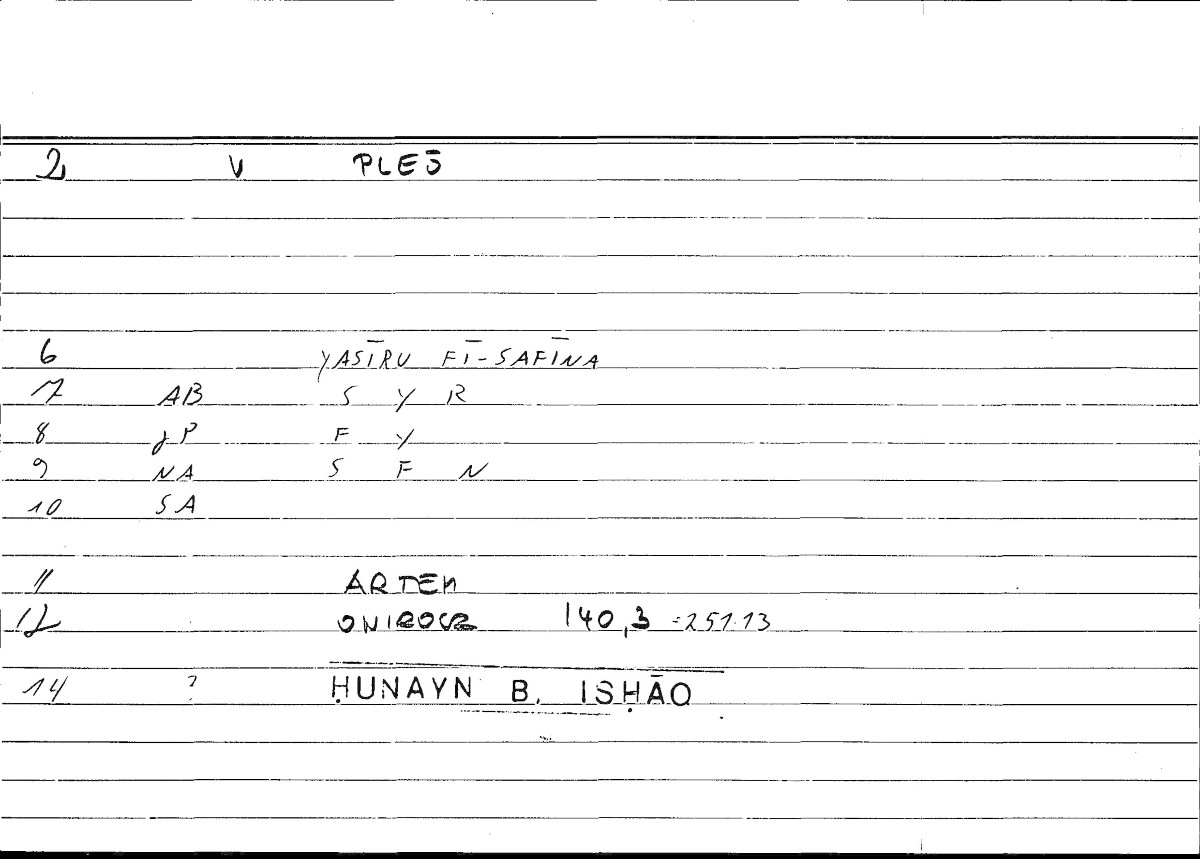 2 V PLEŌ
6 YASĪRU FĪ-SAFĪNA
7 AB S Y R
8 gP F Y
9 NA S F N
10 SA
11 ARTEM
12 ONIROCR 140,3 =251.13
14 ? ḤUNAYN B. ISḤĀQ